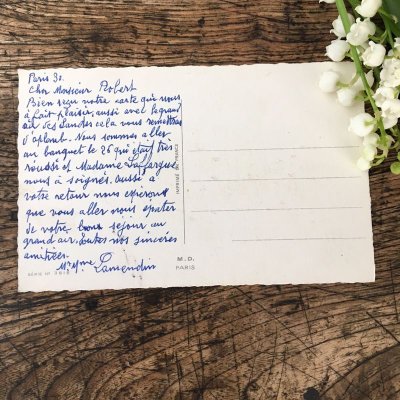 Paris 30.
Cher Monsieur Robert
Bien reçu votre carte qui nous
à fait plaisir, aussi avec le grand
air des Landes cela vous remettra
d'aplomb. Nous sommes aller
au banquet le 26 qui était très
réussis et Madame Lafargue
nous à soignés. aussi a
votre retour nous espérons
que vous aller nous épater
de votre bons sejour au
grand air. toutes nos sincères
amitiées.
Mr Mme Lamendin
SÉRIE Nº
IMPRIMÉ EN FRANCE
M. D.
PARIS